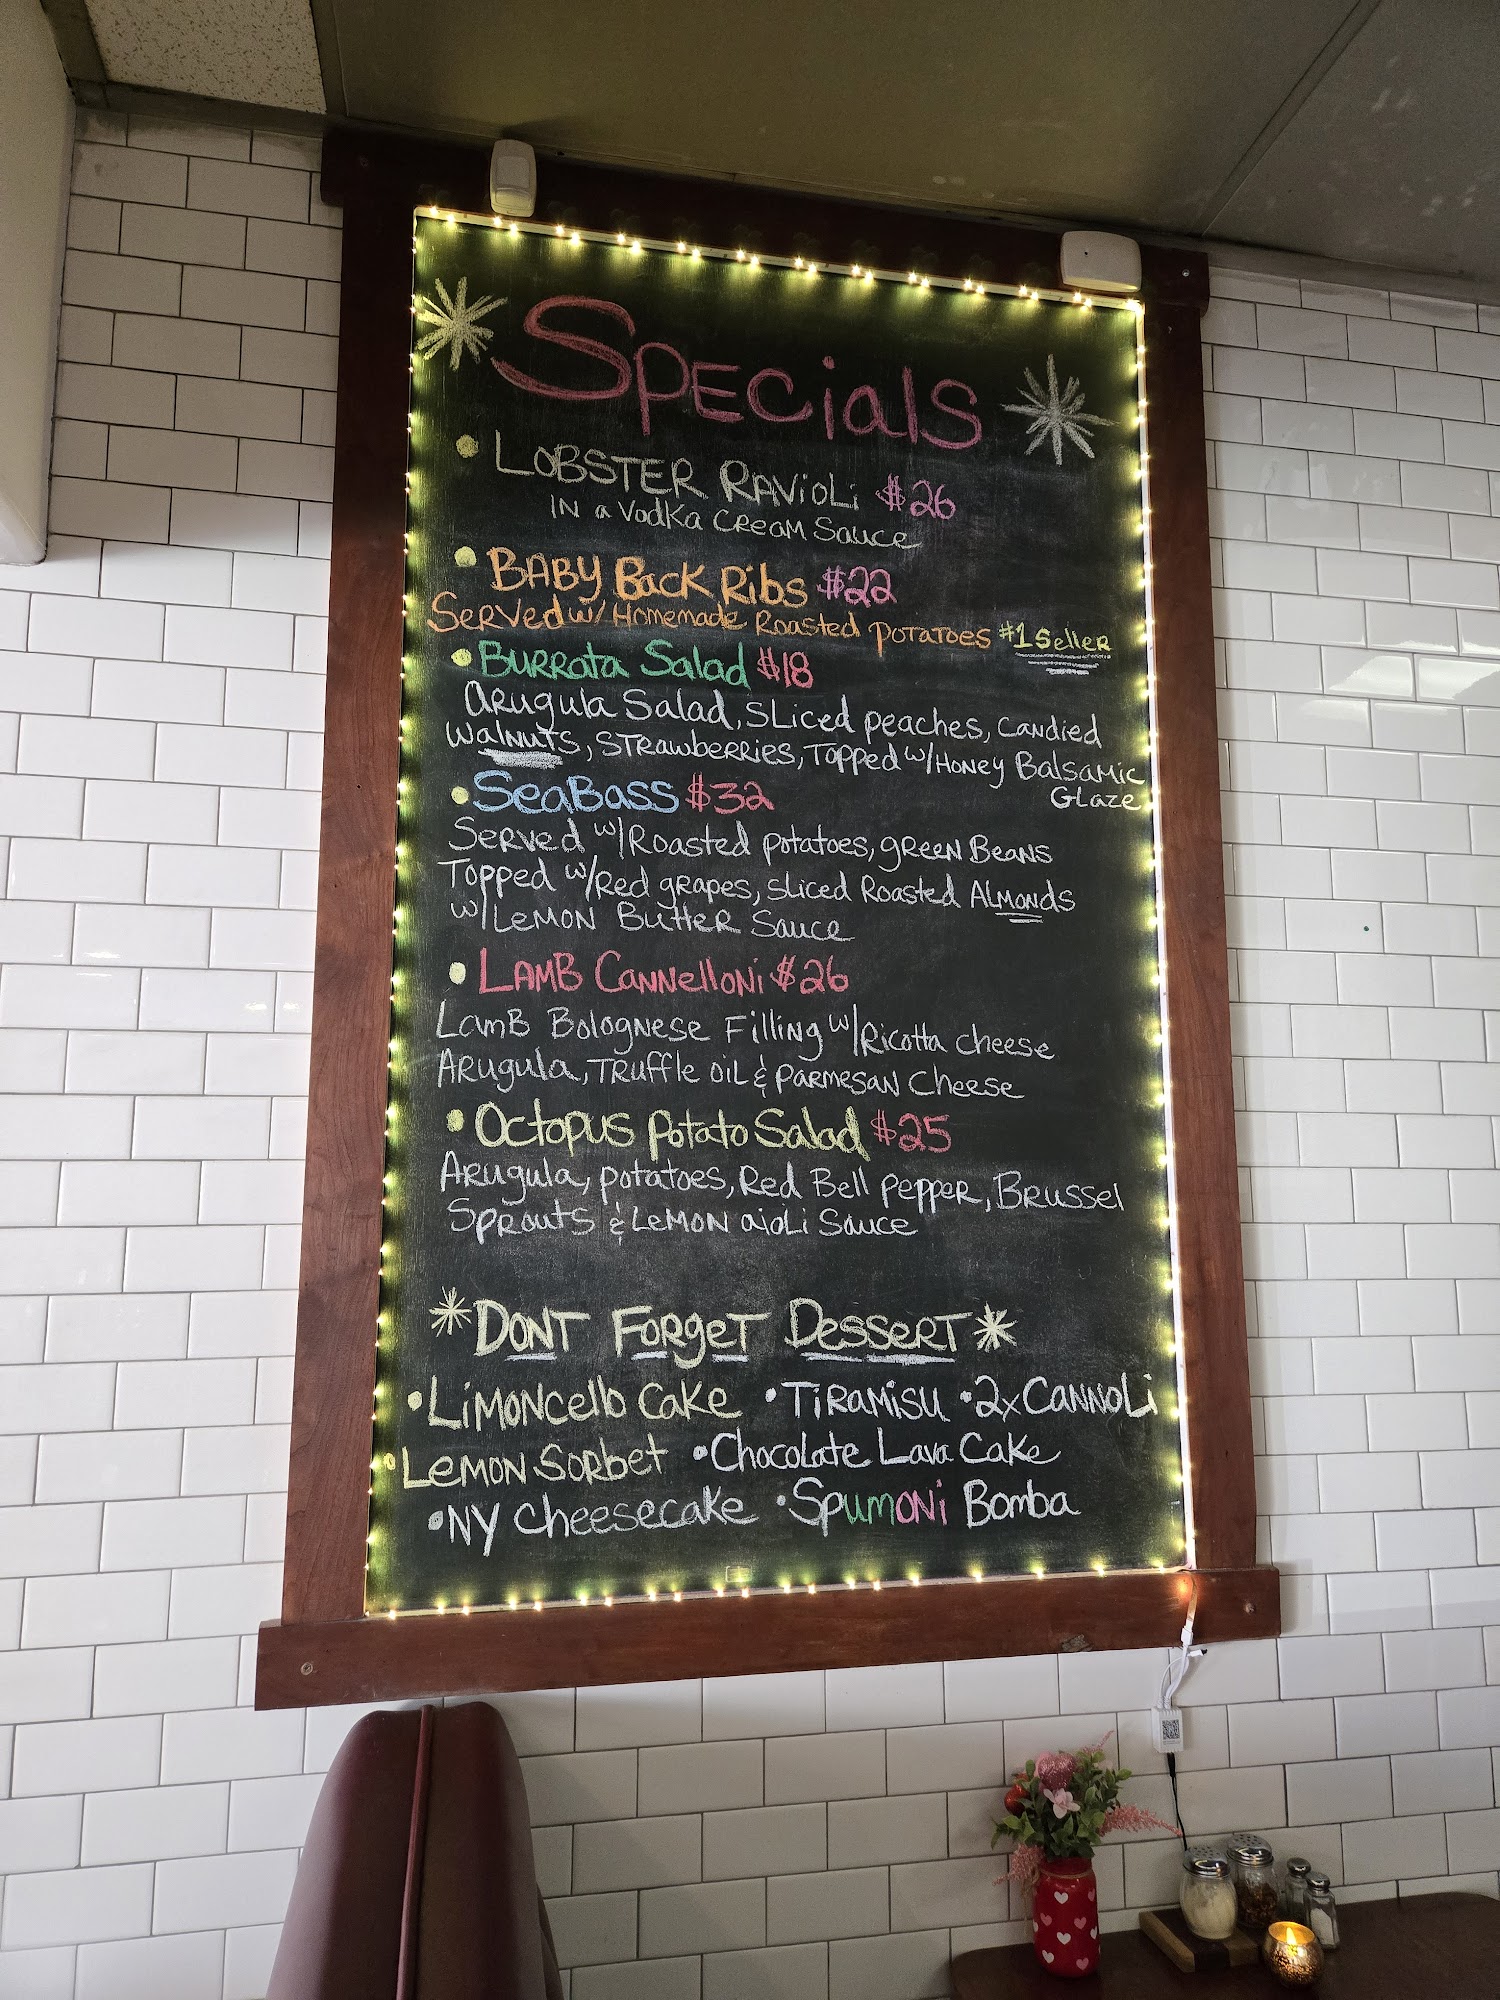 Specials
• Lobster Ravioli $26
in a vodka cream sauce
• Baby Back Ribs $22
Served w/ Homemade Roasted potatoes #1 Seller
• Burrata Salad $18
Arugula Salad, Sliced peaches, candied
walnuts, strawberries, topped w/Honey Balsamic
Glaze
• SeaBass $32
Served w/Roasted potatoes, green Beans
Topped w/red grapes, sliced Roasted Almonds
w/Lemon Butter Sauce
• Lamb Cannelloni $26
Lamb Bolognese Filling w/Ricotta cheese
Arugula, Truffle oil & parmesan cheese
• Octopus potato Salad $25
Arugula, potatoes, Red Bell pepper, Brussel
Sprouts & Lemon aioli Sauce
*Dont Forget Dessert*
• Limoncello Cake • Tiramisu • 2x Cannoli
• Lemon Sorbet • Chocolate Lava Cake
• NY Cheesecake • Spumoni Bomba